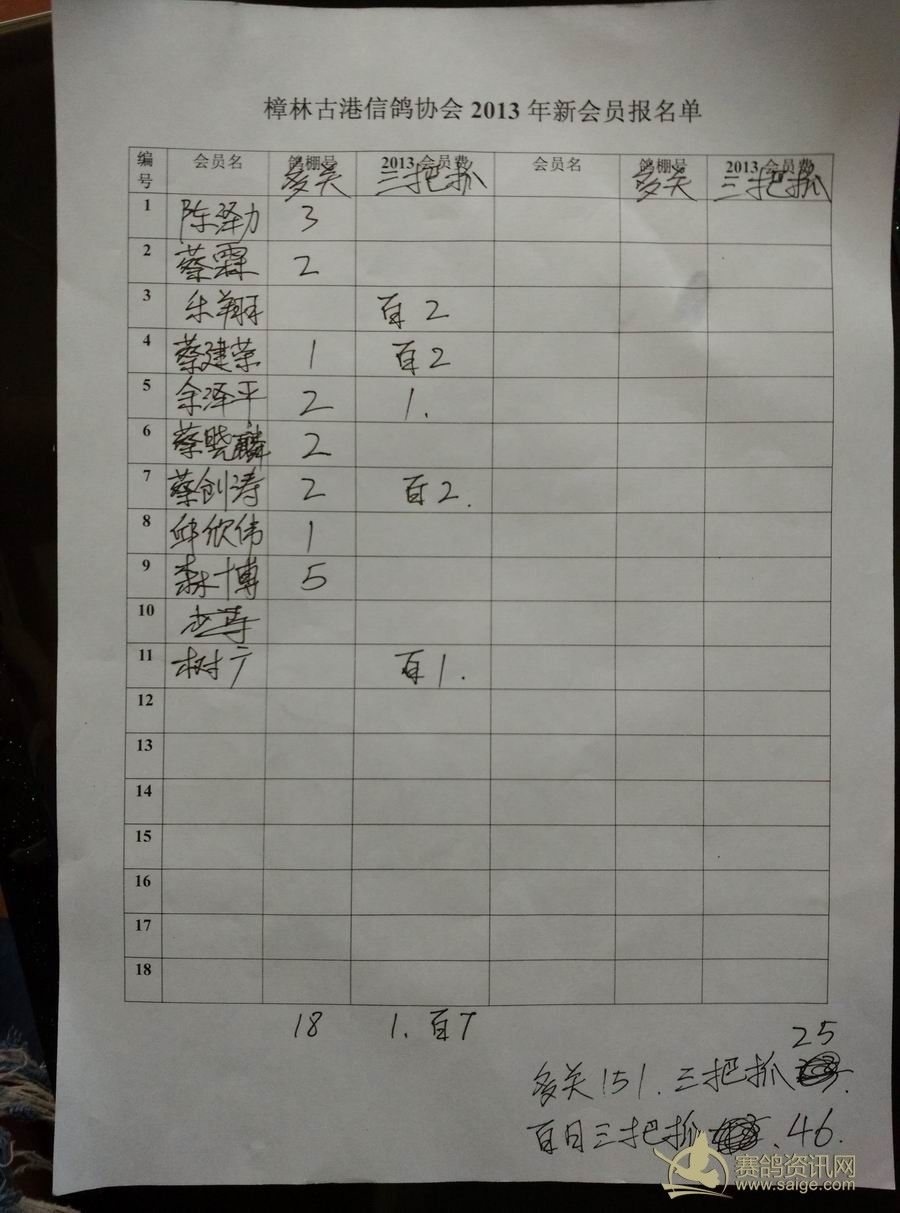 樟林古港信鸽协会 2013 年新会员报名单
编号 会员名 鸽棚号 2013 会员费 会员名 鸽棚号 2013 会员费
多关 三把抓 多关 三把抓
1 陈泽力 3
2 蔡霖 2
3 乐翔 百2
4 蔡建荣 1 百2
5 余泽平 2 1.
6 蔡晓麟 2
7 蔡创涛 2 百2.
8 邱欣伟 1
9 森博 5
10
11 树广 百1.
12
13
14
15
16
17
18
18 1. 百7
25
多关151. 三把抓
百日三把抓 . 46.
赛鸽资讯网
www.saige.com